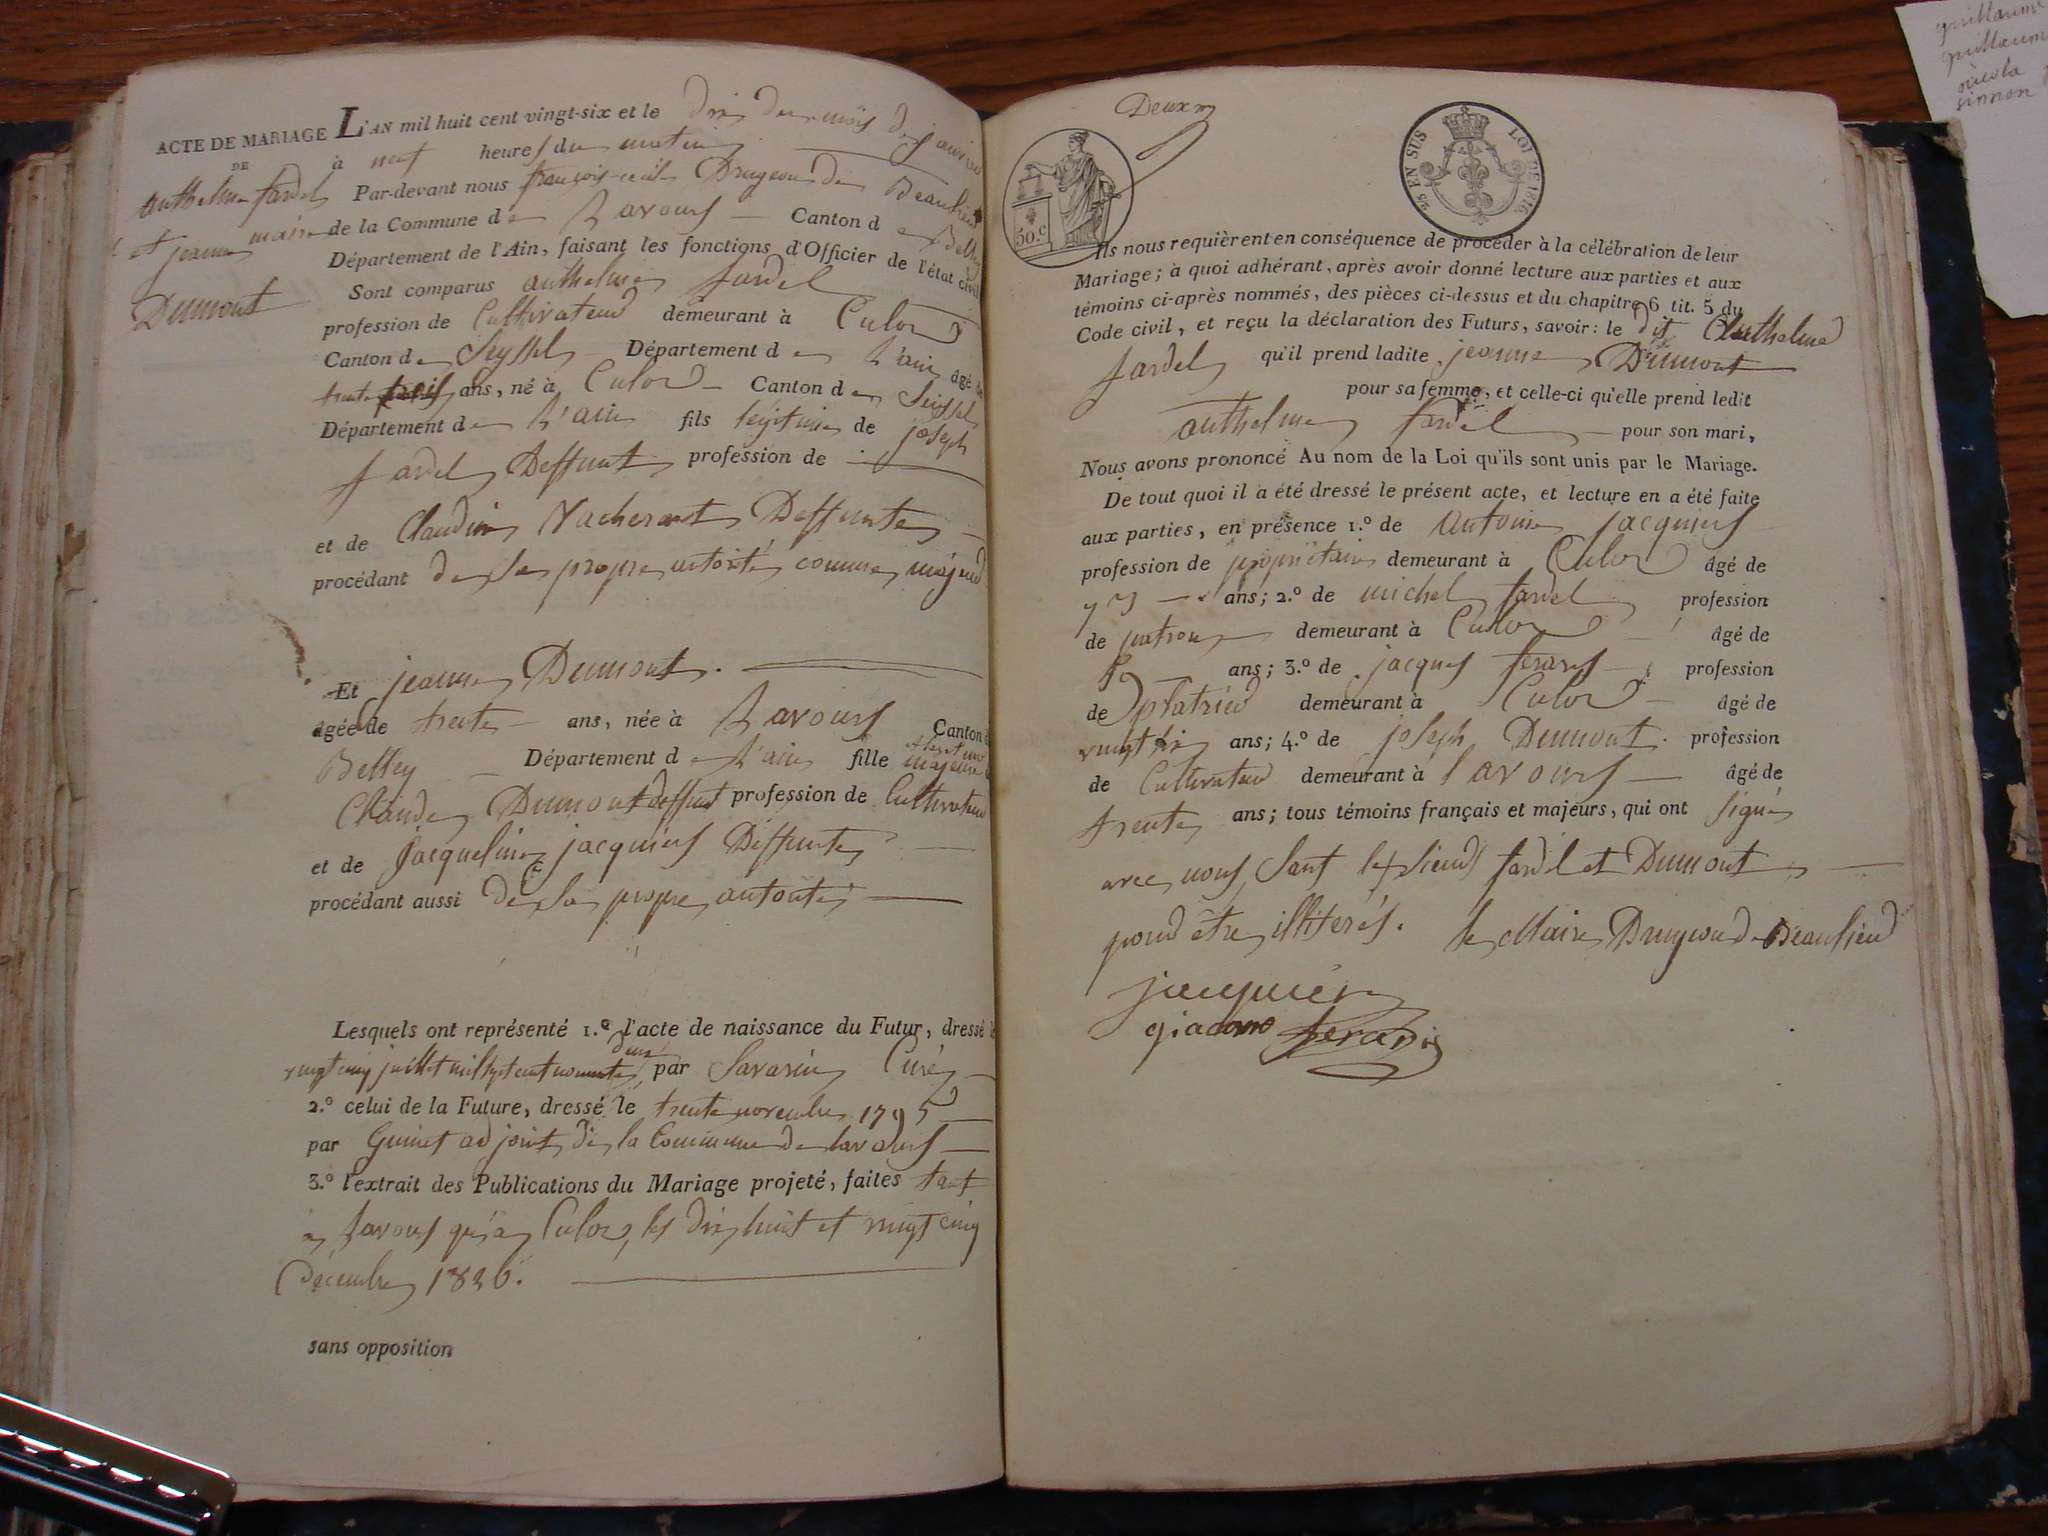 ACTE DE MARIAGE L'AN mil huit cent vingt-six et le dix du mois de janvier
DE
à neuf heures du matin
anthelme fardel Par-devant nous françois Drugeon de Beaulieu
maire de la Commune de Lavours Canton de Belley
et jeanne Département de l'Ain, faisant les fonctions d'Officier de l'état civil
Dumont
Sont comparus anthelme fardel
profession de Cultivateur demeurant à Culoz
Canton de Seyssel Département de L'ain âgé de
trente trois ans, né à Culoz Canton de Seissel
Département de L'ain fils légitime de joseph
fardel Deffunt profession de
et de Claudine Vacherant Deffunte
procédant de sa propre autorité comme majeur
Et jeanne Dumont.
âgée de trente ans, née à Lavours Canton de
Belley Département de L'ain fille majeure
Claude Dumont deffunt profession de Cultivateur
et de jacqueline jacquiers Deffunte
procédant aussi de sa propre autorité
Lesquels ont représenté 1.º l'acte de naissance du Futur, dressé le
vingt cinq juillet mil sept cent nonante deux par Savarin Curé
2.º celui de la Future, dressé le trente novembre 1795
par Guinet adjoint de la Commune de Lavours
3.º l'extrait des Publications du Mariage projeté, faites tant
à Lavours qu'à Culoz, les dix huit et vingt cinq
Décembre 1826.
sans opposition
Deux
50.c
25 EN SUS LOI DE 1816
Ils nous requièrent en conséquence de procéder à la célébration de leur
Mariage; à quoi adhérant, après avoir donné lecture aux parties et aux
témoins ci-après nommés, des pièces ci-dessus et du chapitre 6 tit. 5 du
Code civil, et reçu la déclaration des Futurs, savoir: le dit Anthelme
fardel qu'il prend ladite jeanne Dumont
pour sa femme, et celle-ci qu'elle prend ledit
anthelme fardel pour son mari,
Nous avons prononcé Au nom de la Loi qu'ils sont unis par le Mariage.
De tout quoi il a été dressé le présent acte, et lecture en a été faite
aux parties, en présence 1.º de antoine jacquiers
profession de propriétaire demeurant à Culoz âgé de
73 ans; 2.º de michel fardel profession
de patron demeurant à Culoz âgé de
ans; 3.º de jacques feraris profession
de platrier demeurant à Culoz âgé de
vingt six ans; 4.º de joseph Dumont profession
de Cultivateur demeurant à Lavours âgé de
trente ans; tous témoins français et majeurs, qui ont signé
avec nous, Sauf les Sieurs fardel et Dumont
pour être illiterés. le Maire Drugeon de Beaulieu
jacquier
giacomo feraris
guillaume
guillaume
nicola
simon